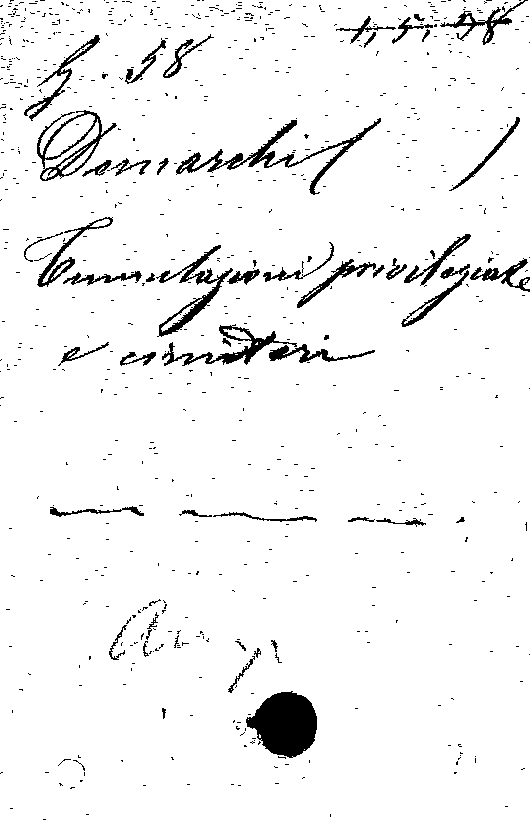 1, 5, 58
G. 58
Demarchi ( )
Tumulazioni privilegiate
e cimiteri